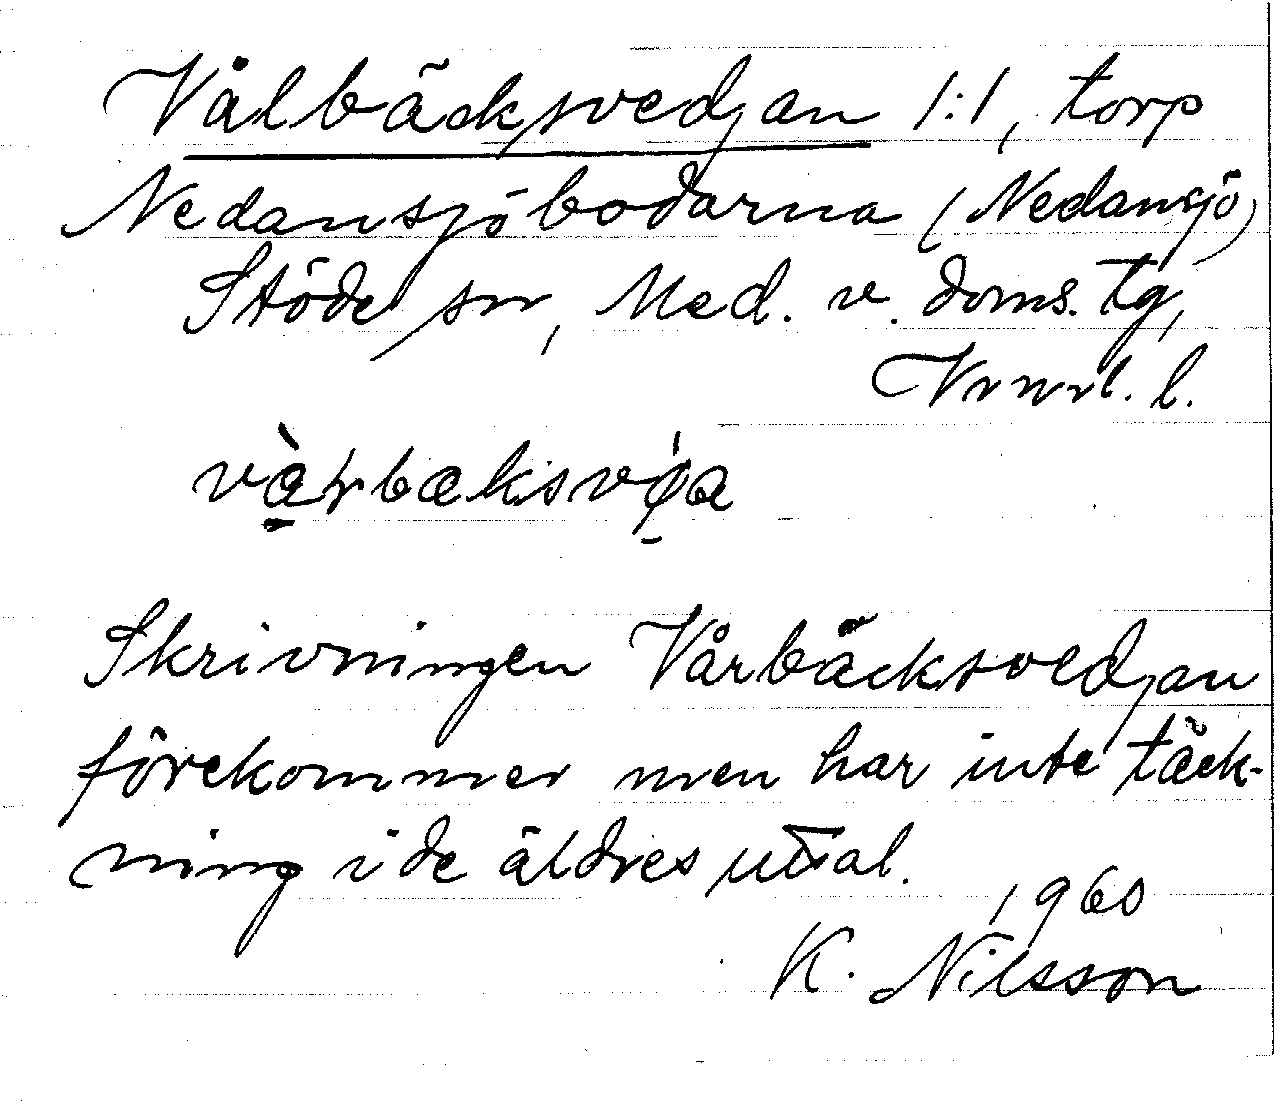 Vålbäcksvedjan 1:1, torp
Nedansjöbodarna (Nedansjö)
Stöde sn, Med. v. doms. tg,
Vrnrl. l.
Skrivningen Vårbäcksvedjan
förekommer men har inte täck-
ning i de äldres uttal.
1960
K. Nilsson